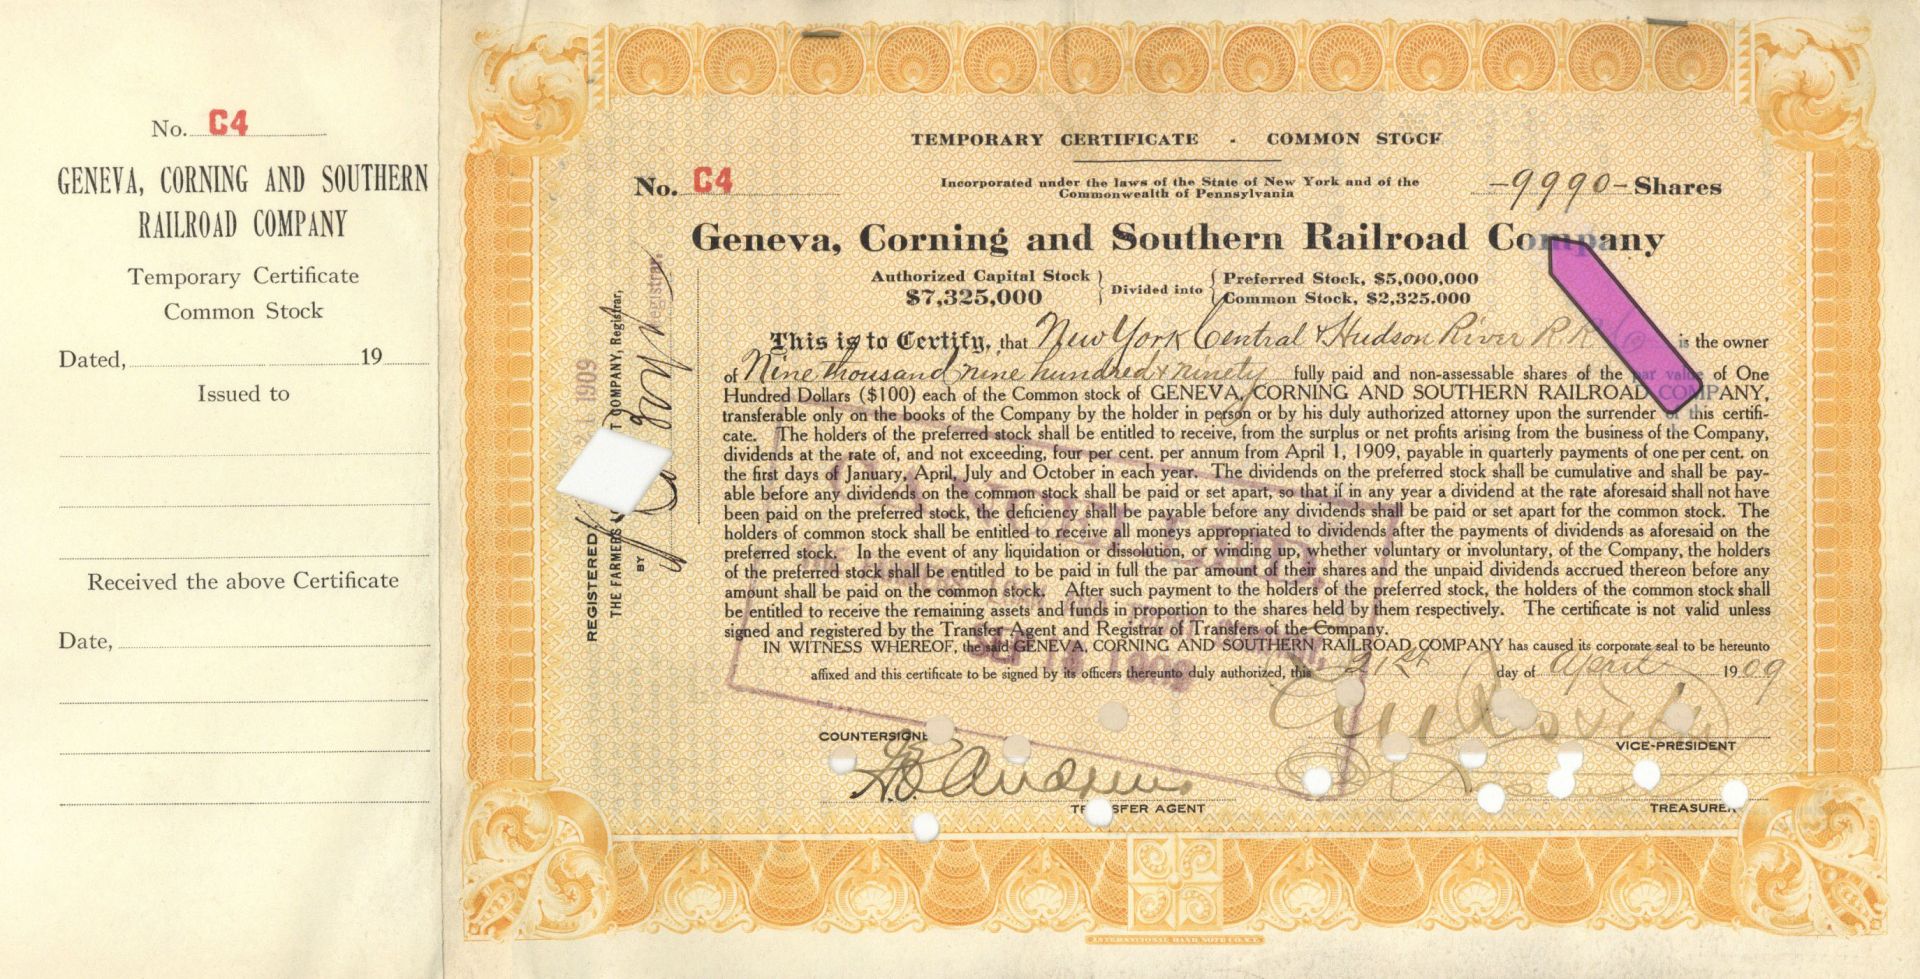 No. C4
GENEVA, CORNING AND SOUTHERN
RAILROAD COMPANY
Temporary Certificate
Common Stock
Dated, 19
Issued to
Received the above Certificate
Date,
TEMPORARY CERTIFICATE - COMMON STOCK
No. C4
Incorporated under the laws of the State of New York and of the
Commonwealth of Pennsylvania
-9990- Shares
Geneva, Corning and Southern Railroad Company
Authorized Capital Stock
$7,325,000
Divided into
Preferred Stock, $5,000,000
Common Stock, $2,325,000
This is to Certify, that New York Central & Hudson River R.R. Co is the owner
of Nine thousand nine hundred & ninety fully paid and non-assessable shares of the par value of One
Hundred Dollars ($100) each of the Common stock of GENEVA, CORNING AND SOUTHERN RAILROAD COMPANY,
transferable only on the books of the Company by the holder in person or by his duly authorized attorney upon the surrender of this certifi-
cate. The holders of the preferred stock shall be entitled to receive, from the surplus or net profits arising from the business of the Company,
dividends at the rate of, and not exceeding, four per cent. per annum from April 1, 1909, payable in quarterly payments of one per cent. on
the first days of January, April, July and October in each year. The dividends on the preferred stock shall be cumulative and shall be pay-
able before any dividends on the common stock shall be paid or set apart, so that if in any year a dividend at the rate aforesaid shall not have
been paid on the preferred stock, the deficiency shall be payable before any dividends shall be paid or set apart for the common stock. The
holders of common stock shall be entitled to receive all moneys appropriated to dividends after the payments of dividends as aforesaid on the
preferred stock. In the event of any liquidation or dissolution, or winding up, whether voluntary or involuntary, of the Company, the holders
of the preferred stock shall be entitled to be paid in full the par amount of their shares and the unpaid dividends accrued thereon before any
amount shall be paid on the common stock. After such payment to the holders of the preferred stock, the holders of the common stock shall
be entitled to receive the remaining assets and funds in proportion to the shares held by them respectively. The certificate is not valid unless
signed and registered by the Transfer Agent and Registrar of Transfers of the Company.
IN WITNESS WHEREOF, the said GENEVA, CORNING AND SOUTHERN RAILROAD COMPANY has caused its corporate seal to be hereunto
affixed and this certificate to be signed by its officers thereunto duly authorized, this 21st day of April 1909
COUNTERSIGNED
VICE-PRESIDENT
TRANSFER AGENT
TREASURER
REGISTERED 21 1909
THE FARMERS LOAN & TRUST COMPANY, Registrar,
BY Registrar.
CANCELLED.
THE FARMERS LOAN AND TRUST COMPANY,
SEP 1909
INTERNATIONAL BANK NOTE CO. N.Y.